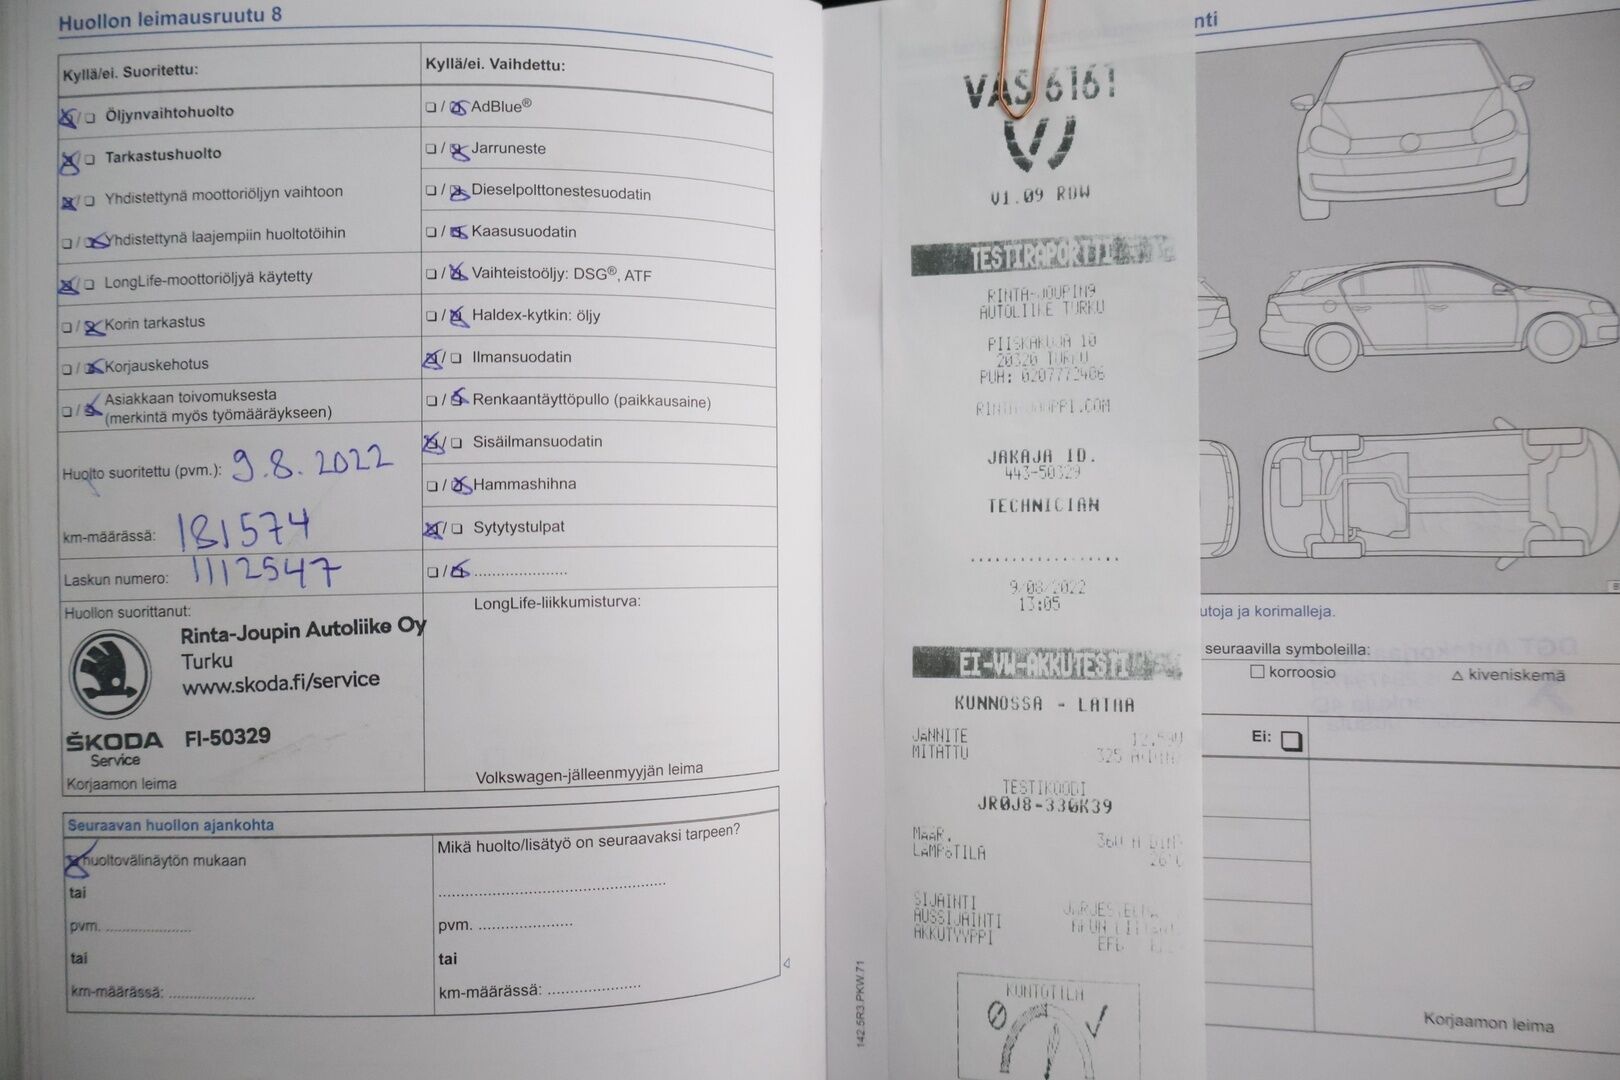 Huollon leimausruutu 8
Kyllä/ei. Suoritettu:
Öljynvaihtohuolto
Tarkastushuolto
Yhdistettynä moottoriöljyn vaihtoon
Yhdistettynä laajempiin huoltotöihin
LongLife-moottoriöljyä käytetty
Korin tarkastus
Korjauskehotus
Asiakkaan toivomuksesta
(merkintä myös työmääräykseen)
Huolto suoritettu (pvm.): 9.8.2022
km-määrässä: 181574
Laskun numero: 1112547
Huollon suorittanut:
Rinta-Joupin Autoliike Oy
Turku
www.skoda.fi/service
ŠKODA FI-50329
Service
Korjaamon leima
Kyllä/ei. Vaihdettu:
AdBlue®
Jarruneste
Dieselpolttonestesuodatin
Kaasusuodatin
Vaihteistoöljy: DSG®, ATF
Haldex-kytkin: öljy
Ilmansuodatin
Renkaantäyttöpullo (paikkausaine)
Sisäilmansuodatin
Hammashihna
Sytytystulpat
LongLife-liikkumisturva:
Volkswagen-jälleenmyyjän leima
Seuraavan huollon ajankohta
huoltovälinäytön mukaan
tai
pvm.
tai
km-määrässä:
Mikä huolto/lisätyö on seuraavaksi tarpeen?
pvm.
tai
km-määrässä:
142.5R3.PKW.71
VAS 6161
V1.09 ROW
TESTIRAPORTTI
RINTA-JOUPIN
AUTOLIIKE TURKU
PIISKAKUJA 10
20320 TURKU
PUH: 0207772406
RINTA-JOUPPI.COM
JAKAJA ID.
443-50329
TECHNICIAN
9/08/2022
13:05
EI-VW-AKKUTESTI
KUNNOSSA - LATAA
JÄNNITE
MITATTU 325 A
TESTIKOODI
JR0J8-330K39
MÄÄR. 360 A DIN
LÄMPÖTILA 26°C
SIJAINTI
AUSSIJAINTI
AKKUTYYPPI EFB
KUNTOTILA
nti
utoja ja korimalleja.
seuraavilla symboleilla:
korroosio
kiveniskemä
Ei:
Korjaamon leima